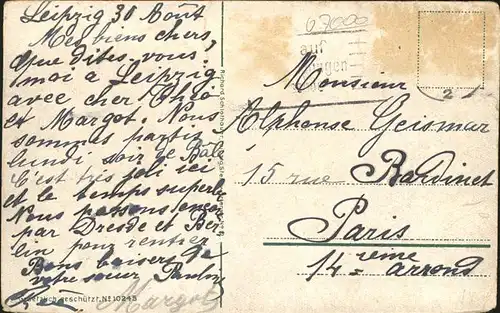 Leipzig 30 Août
Mes biens chers,
Que dites, vous,
moi a Leipzig
avec cher
et Margot. Nous
sommes partis
lundi soir de Bâle
C'est très joli ici
et le temps superbe
Nous passons encore
par Dresde et Ber
lin pour rentrer
Bons baisers de
votre sœur
Margot
gesetzlich geschützt. No 10245
67000
Monsieur
Alphonse Geismar
15 rue Bardinet
Paris
14-ième arrond